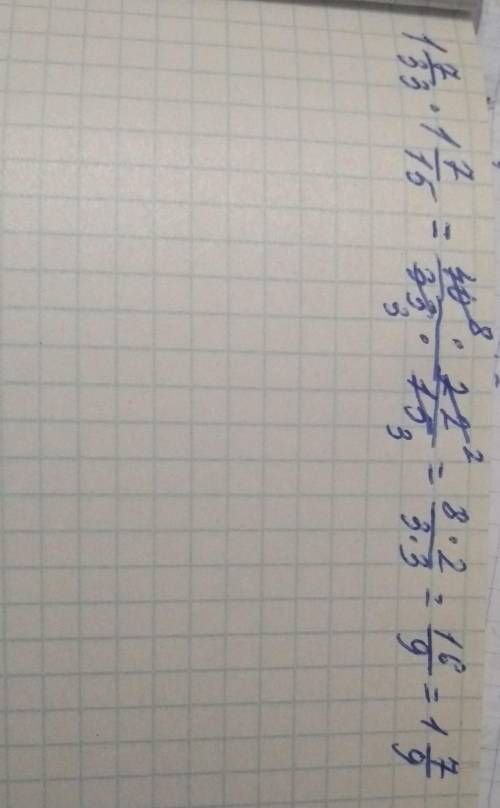 1 7/33 · 1 7/15 = 40 8 · 22 2 / 33 3 · 15 3 = 8·2/3·3 = 16/9 = 1 7/9